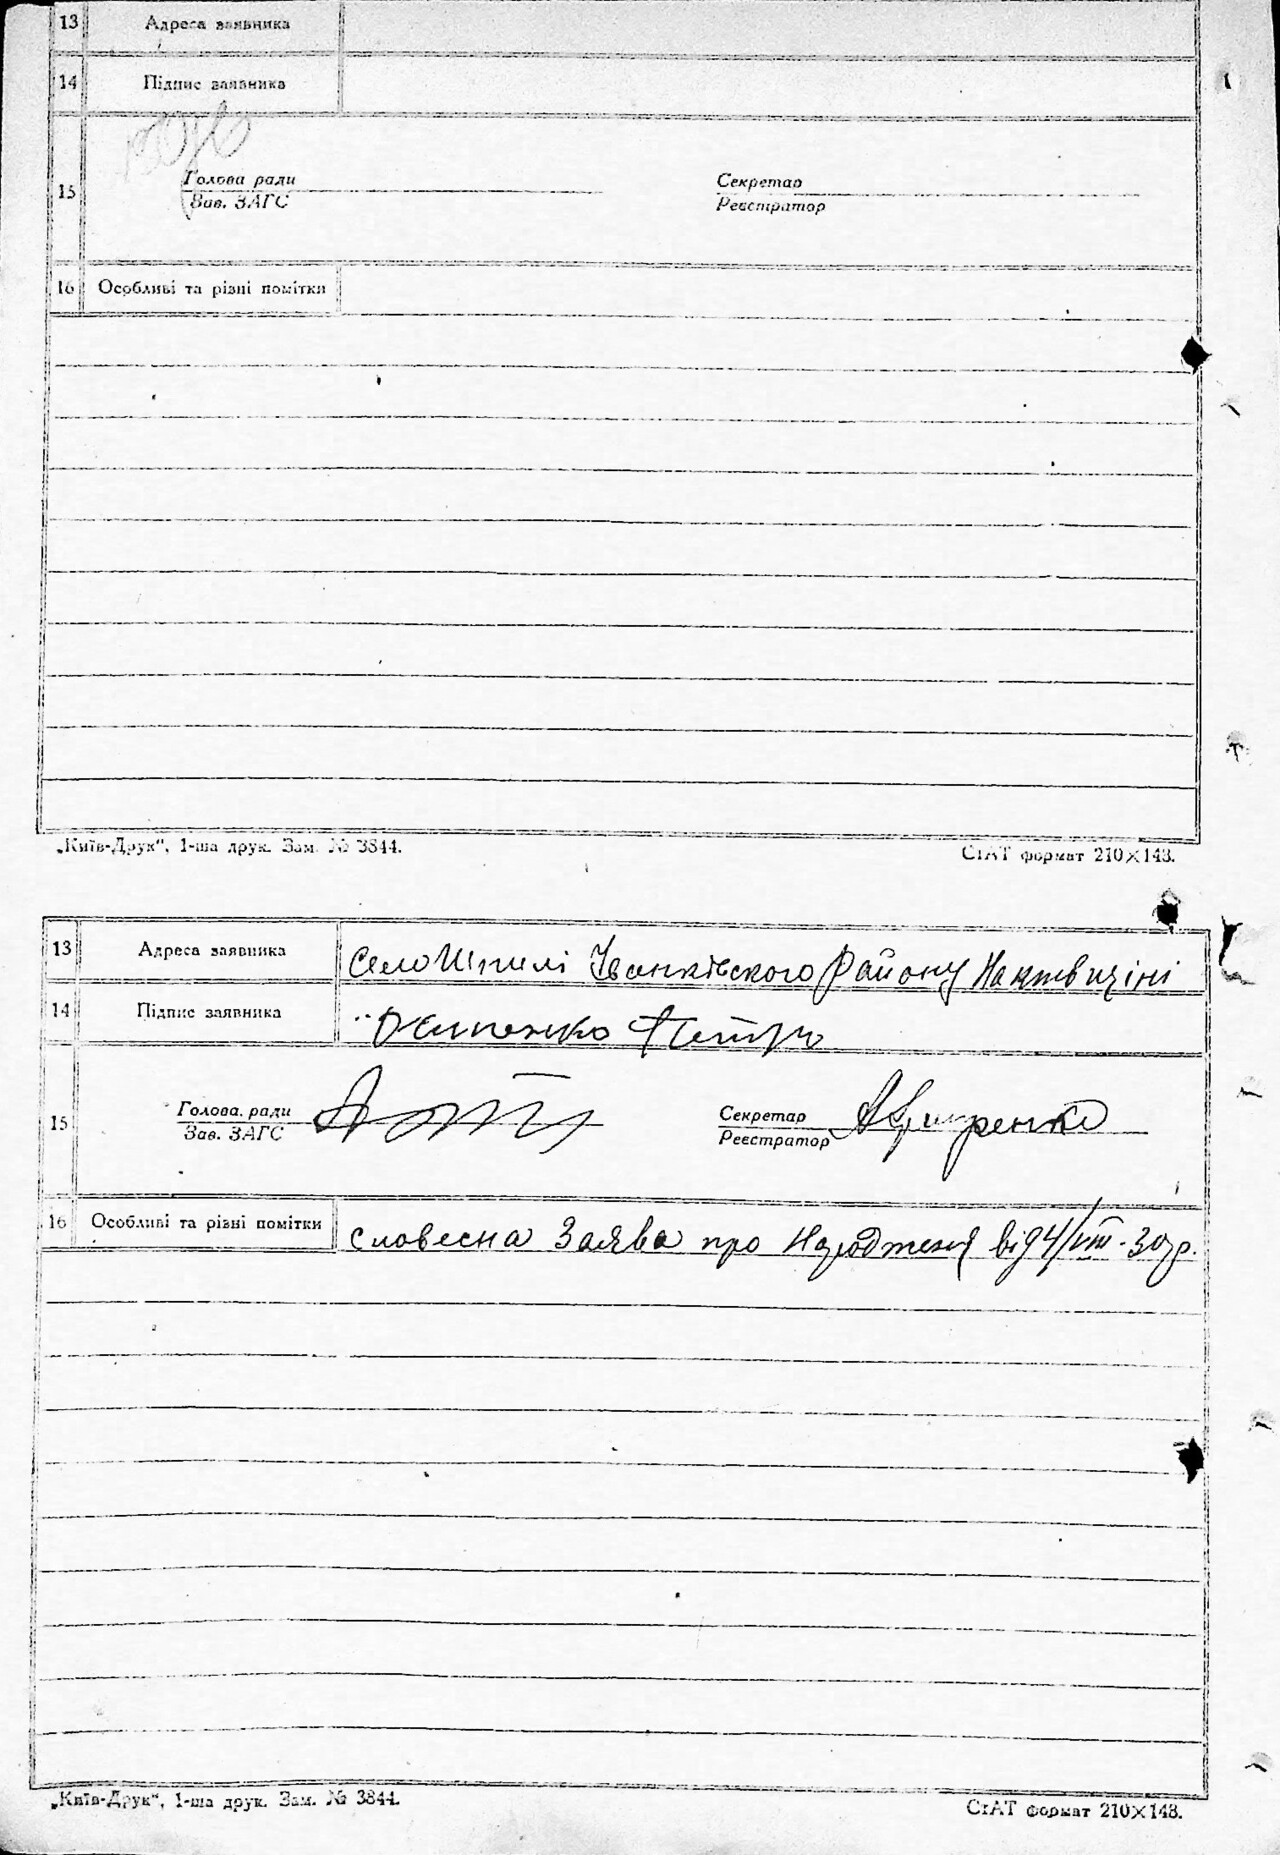 13 Адреса заявника
14 Підпис заявника
15 Голова ради Секретар
Зав. ЗАГС Реєстратор
16 Особливі та різні помітки
„Київ-Друк“, 1-ша друк. Зам. № 3844. СтАТ формат 210×148.
13 Адреса заявника село Шпилі Іванківского Району На Київщині
14 Підпис заявника Петро
15 Голова ради Секретар
Зав. ЗАГС Реєстратор
16 Особливі та різні помітки словесна Заява про Народження від 4/VIII-30 р.
„Київ-Друк“, 1-ша друк. Зам. № 3844. СтАТ формат 210×148.